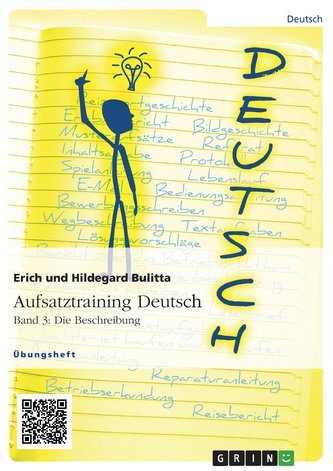 Deutsch
DEUTSCH
Reizwortgeschichte
Bildgeschichte
Referat
Protokoll
Lebenslauf
E-Mail
Bedienungsanleitung
Bewerbungsschreiben
Wegbeschreibung Textaufgaben
Lösungsvorschläge
Erich und Hildegard Bulitta
Aufsatztraining Deutsch
Band 3: Die Beschreibung
Übungsheft
Reparaturanleitung
Betriebserkundung
Reisebericht
GRIN